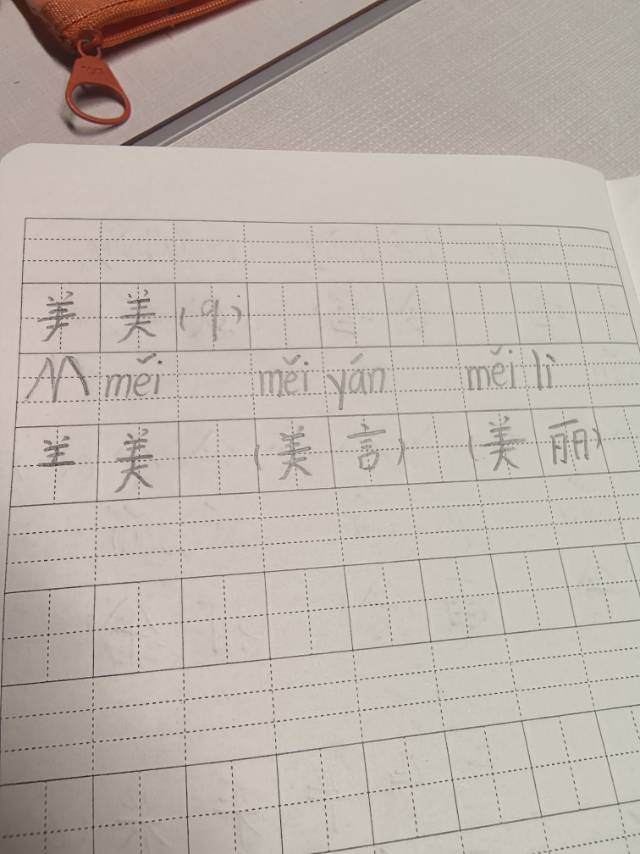 美 (9)
M měi měi yán měi lì
美 (美言) (美丽)